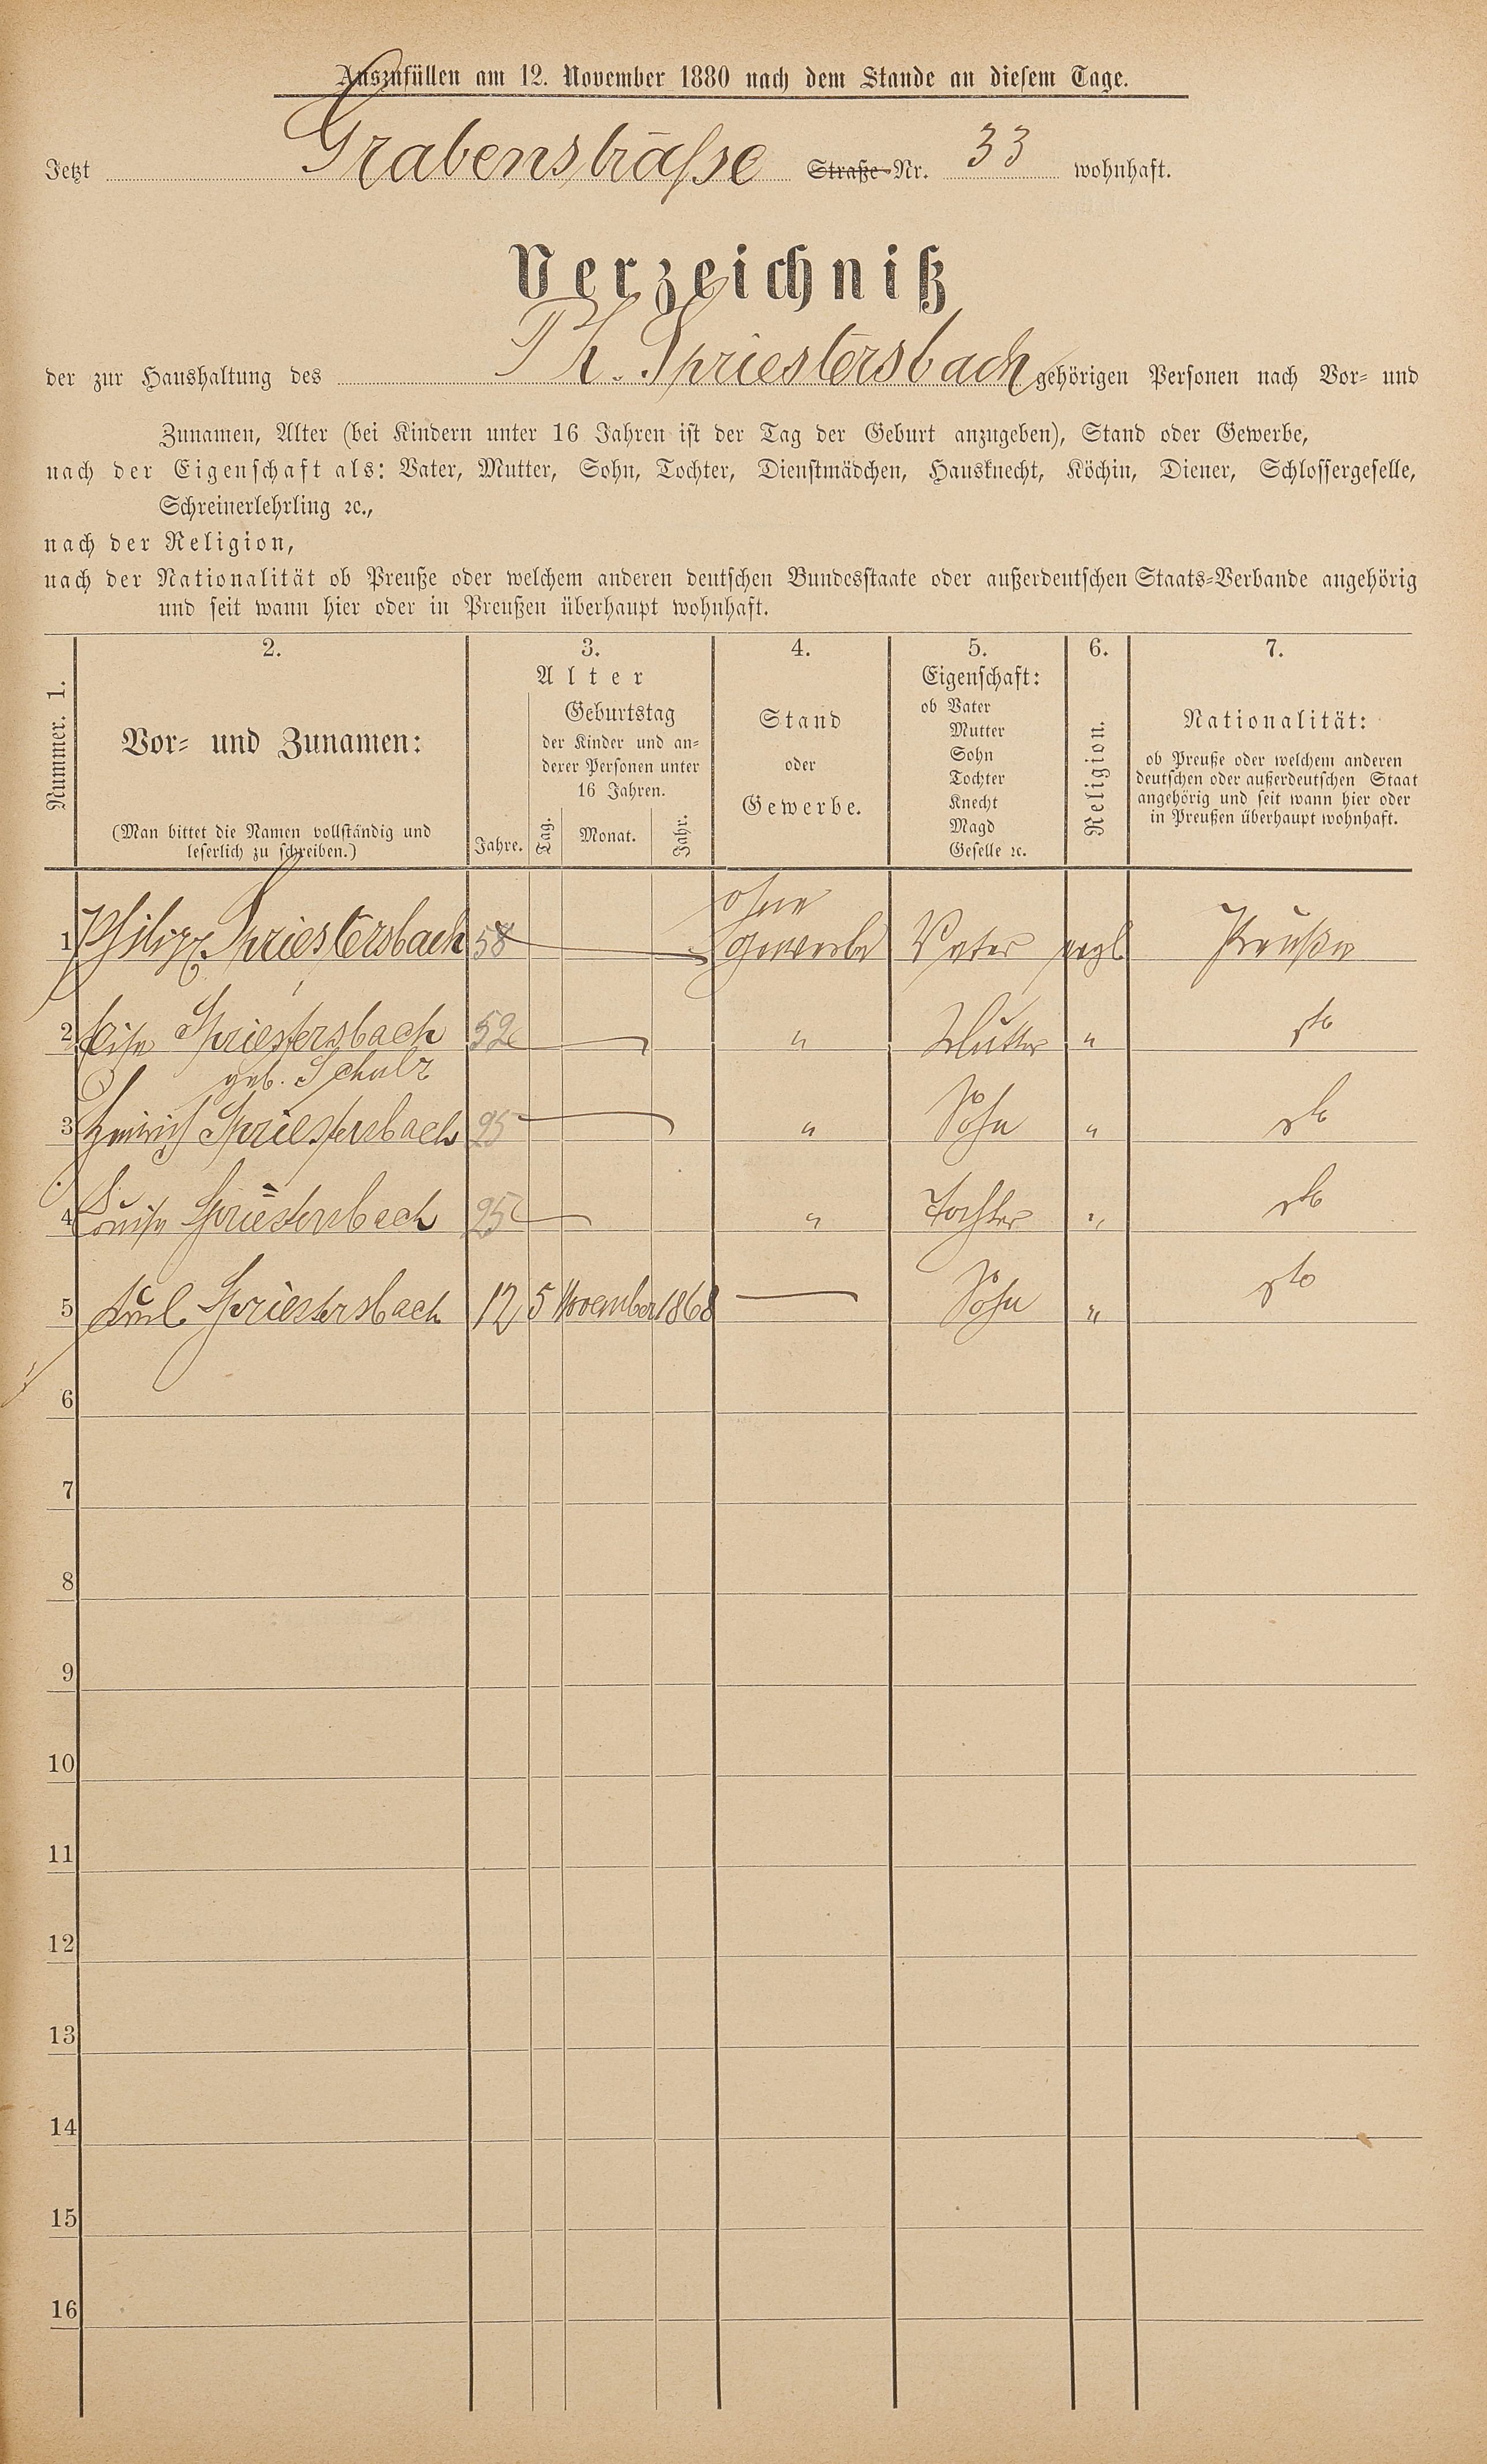 Auszufüllen am 12. November 1880 nach dem Stande an diesem Tage.
Jetzt Grabenstraße Straße Nr. 33 wohnhaft.
Verzeichniß
der zur Haushaltung des Ph. Spriestersbach gehörigen Personen nach Vor- und
Zunamen, Alter (bei Kindern unter 16 Jahren ist der Tag der Geburt anzugeben), Stand oder Gewerbe,
nach der Eigenschaft als: Vater, Mutter, Sohn, Tochter, Dienstmädchen, Hausknecht, Köchin, Diener, Schlossergeselle,
Schreinerlehrling ꝛc.,
nach der Religion,
nach der Nationalität ob Preuße oder welchem anderen deutschen Bundesstaate oder außerdeutschen Staats-Verbande angehörig
und seit wann hier oder in Preußen überhaupt wohnhaft.
Nummer. 1.
2.
Vor- und Zunamen:
(Man bittet die Namen vollständig und
leserlich zu schreiben.)
3.
Alter
Jahre.
Geburtstag
der Kinder und an-
derer Personen unter
16 Jahren.
Tag. Monat. Jahr.
4.
Stand
oder
Gewerbe.
5.
Eigenschaft:
ob Vater
Mutter
Sohn
Tochter
Knecht
Magd
Geselle ꝛc.
6.
Religion.
7.
Nationalität:
ob Preuße oder welchem anderen
deutschen oder außerdeutschen Staat
angehörig und seit wann hier oder
in Preußen überhaupt wohnhaft.
ohne
1 Philipp Spriestersbach 58 Gewerbe Vater evgl Preuße
2 Spriestersbach 52 " Mutter " do
geb. Schulz
3 Heinrich Spriestersbach 25 " Sohn " do
4 Louise Spriestersbach 25 " Tochter " do
5 Spriestersbach 12 5 November 1868 Sohn " do
6
7
8
9
10
11
12
13
14
15
16